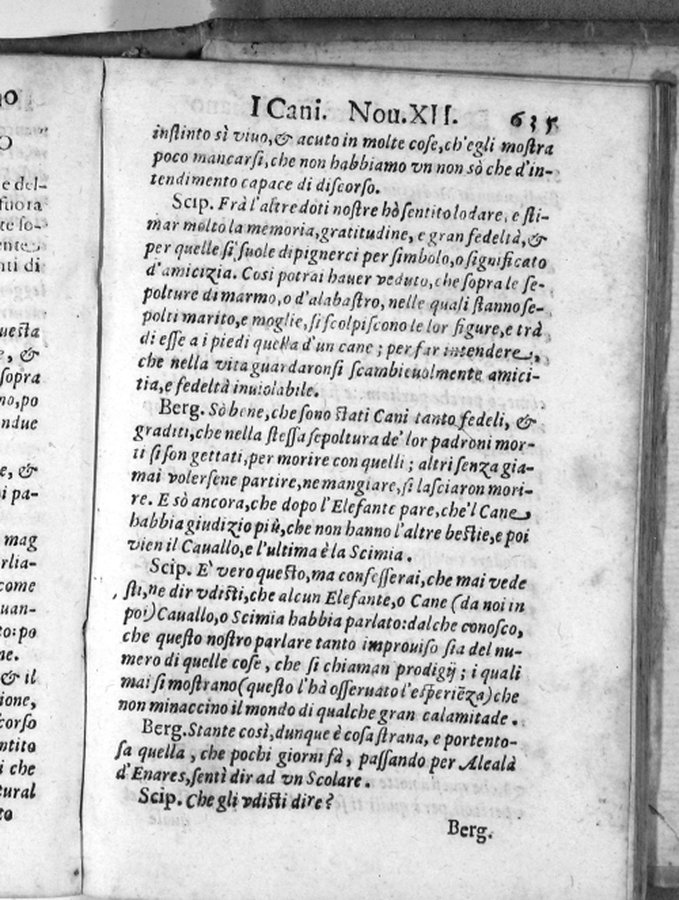 no
O
e del-
fuora
te ſo-
ente
nti di
ueſta
e, &
ſopra
no, po
endue
e, &
i pa-
mag
rlia-
come
uan-
to: po
ne.
& il
ione,
corſo
ntito
i che
tural
to
I Cani. Nou. XII. 635
inſtinto sì viuo, & acuto in molte coſe, ch'egli moſtra
poco mancarſi, che non habbiamo vn non sò che d'in-
tendimento capace di diſcorſo.
Scip. Frà l'altre doti noſtre hò ſentito lodare, e ſti-
mar molto la memoria, gratitudine, e gran fedeltà, &
per quelle ſi ſuole dipignerci per ſimbolo, o ſignificato
d'amicizia. Così potrai hauer veduto, che ſopra le ſe-
polture di marmo, o d'alabaſtro, nelle quali ſtanno ſe-
polti marito, e moglie, ſi ſcolpiſcono le lor figure, e trà
di eſſe a i piedi quella d'un cane; per far intendere,
che nella vita guardaronſi ſcambieuolmente amici-
tia, e fedeltà inuiolabile.
Berg. Sò bene, che ſono ſtati Cani tanto fedeli, &
graditi, che nella ſteſſa ſepoltura de' lor padroni mor-
ti ſi ſon gettati, per morire con quelli; altri ſenza gia-
mai volerſene partire, ne mangiare, ſi laſciaron mori-
re. E sò ancora, che dopo l'Elefante pare, che'l Cane
habbia giudizio più, che non hanno l'altre beſtie, e poi
vien il Cauallo, e l'ultima è la Scimia.
Scip. E' vero queſto, ma confeſſerai, che mai vede
ſti, ne dir vdiſti, che alcun Elefante, o Cane (da noi in
poi) Cauallo, o Scimia habbia parlato: dal che conoſco,
che queſto noſtro parlare tanto improuiſo ſia del nu-
mero di quelle coſe, che ſi chiaman prodigij; i quali
mai ſi moſtrano (queſto l'hà oſſeruato l'eſperiēza) che
non minaccino il mondo di qualche gran calamitade.
Berg. Stante così, dunque è coſa ſtrana, e portento-
ſa quella, che pochi giorni fà, paſſando per Alcalà
d'Enares, ſentì dir ad vn Scolare.
Scip. Che gli vdiſti dire?
Berg.